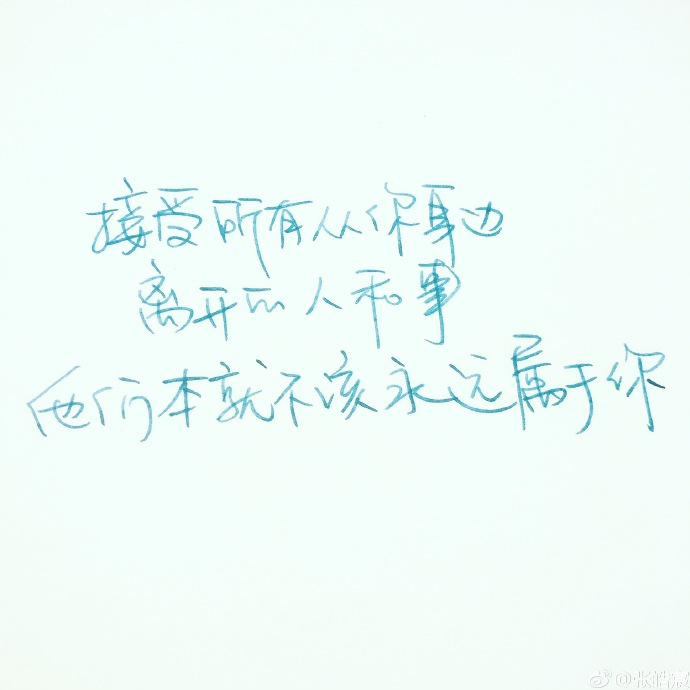 接受所有从你身边
离开的人和事
他们本就不该永远属于你